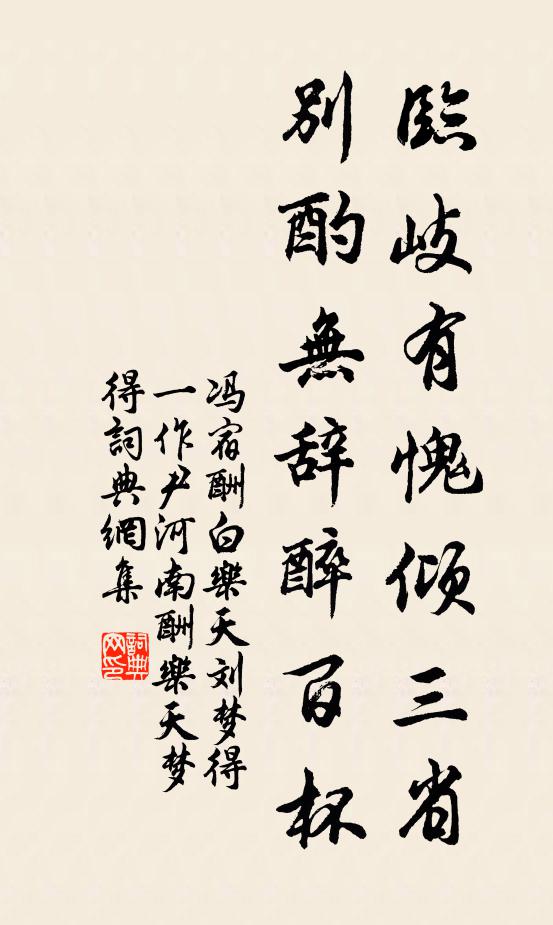 臨岐有愧傾三省
別酌無辞醉百杯
冯宿酬白樂天刘梦得
一作尹河南酬樂天梦
得詞典網集
詞典
网印